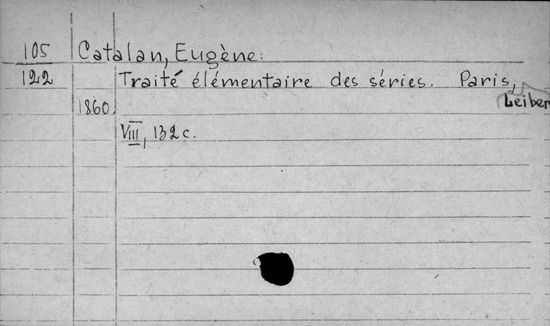 105 Catalan, Eugène:
122 Traité élémentaire des séries. Paris,
Leiber
1860.
VIII, 132 c.